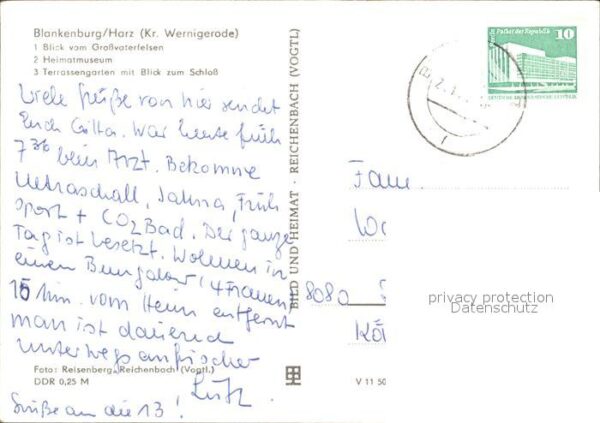 Blankenburg/Harz (Kr. Wernigerode)
1 Blick vom Großvaterfelsen
2 Heimatmuseum
3 Terrassengarten mit Blick zum Schloß
Viele Grüße von hier sendet
Euch Gitta. War heute früh
7³⁰ beim Arzt. Bekomme
Ultraschall, Sauna, Früh
sport + CO2 Bad. Der ganze
Tag ist besetzt. Wohnen in
einem Bungalow (4 Frauen)
15 Min. vom Heim entfernt
man ist dauernd
unterwegs an frischer
Luft
Foto: Reisenberg, Reichenbach (Vogtl.)
DDR 0,25 M
Grüße an die 13!
BILD UND HEIMAT · REICHENBACH (VOGTL)
V 11 50
Berlin Palast der Republik
10
DEUTSCHE DEMOKRATISCHE REPUBLIK
Fam
8080
privacy protection
Datenschutz